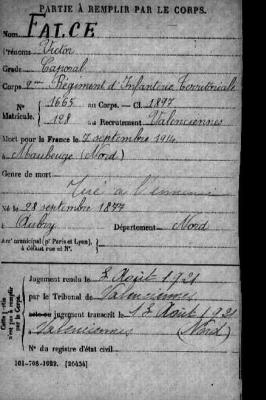 PARTIE À REMPLIR PAR LE CORPS.
Nom FALCE
Prénoms Victor
Grade Caporal
Corps 2me Régiment d'Infanterie Territoriale
N° 1665 au Corps. — Cl. 1897
Matricule. 128 au Recrutement Valenciennes
Mort pour la France le 7 septembre 1914
à Maubeuge (Nord)
Genre de mort Tué à l'ennemi
Né le 28 septembre 1877
à Aubry Département Nord
Arrt municipal (pr Paris et Lyon),
à défaut rue et N°.
Cette partie
n'est pas à remplir
par le Corps.
Jugement rendu le 2 Août 1921
par le Tribunal de Valenciennes
acte ou jugement transcrit le 17 Août 1921
à Valenciennes (Nord)
N° du registre d'état civil
101-708-1922. [26434]